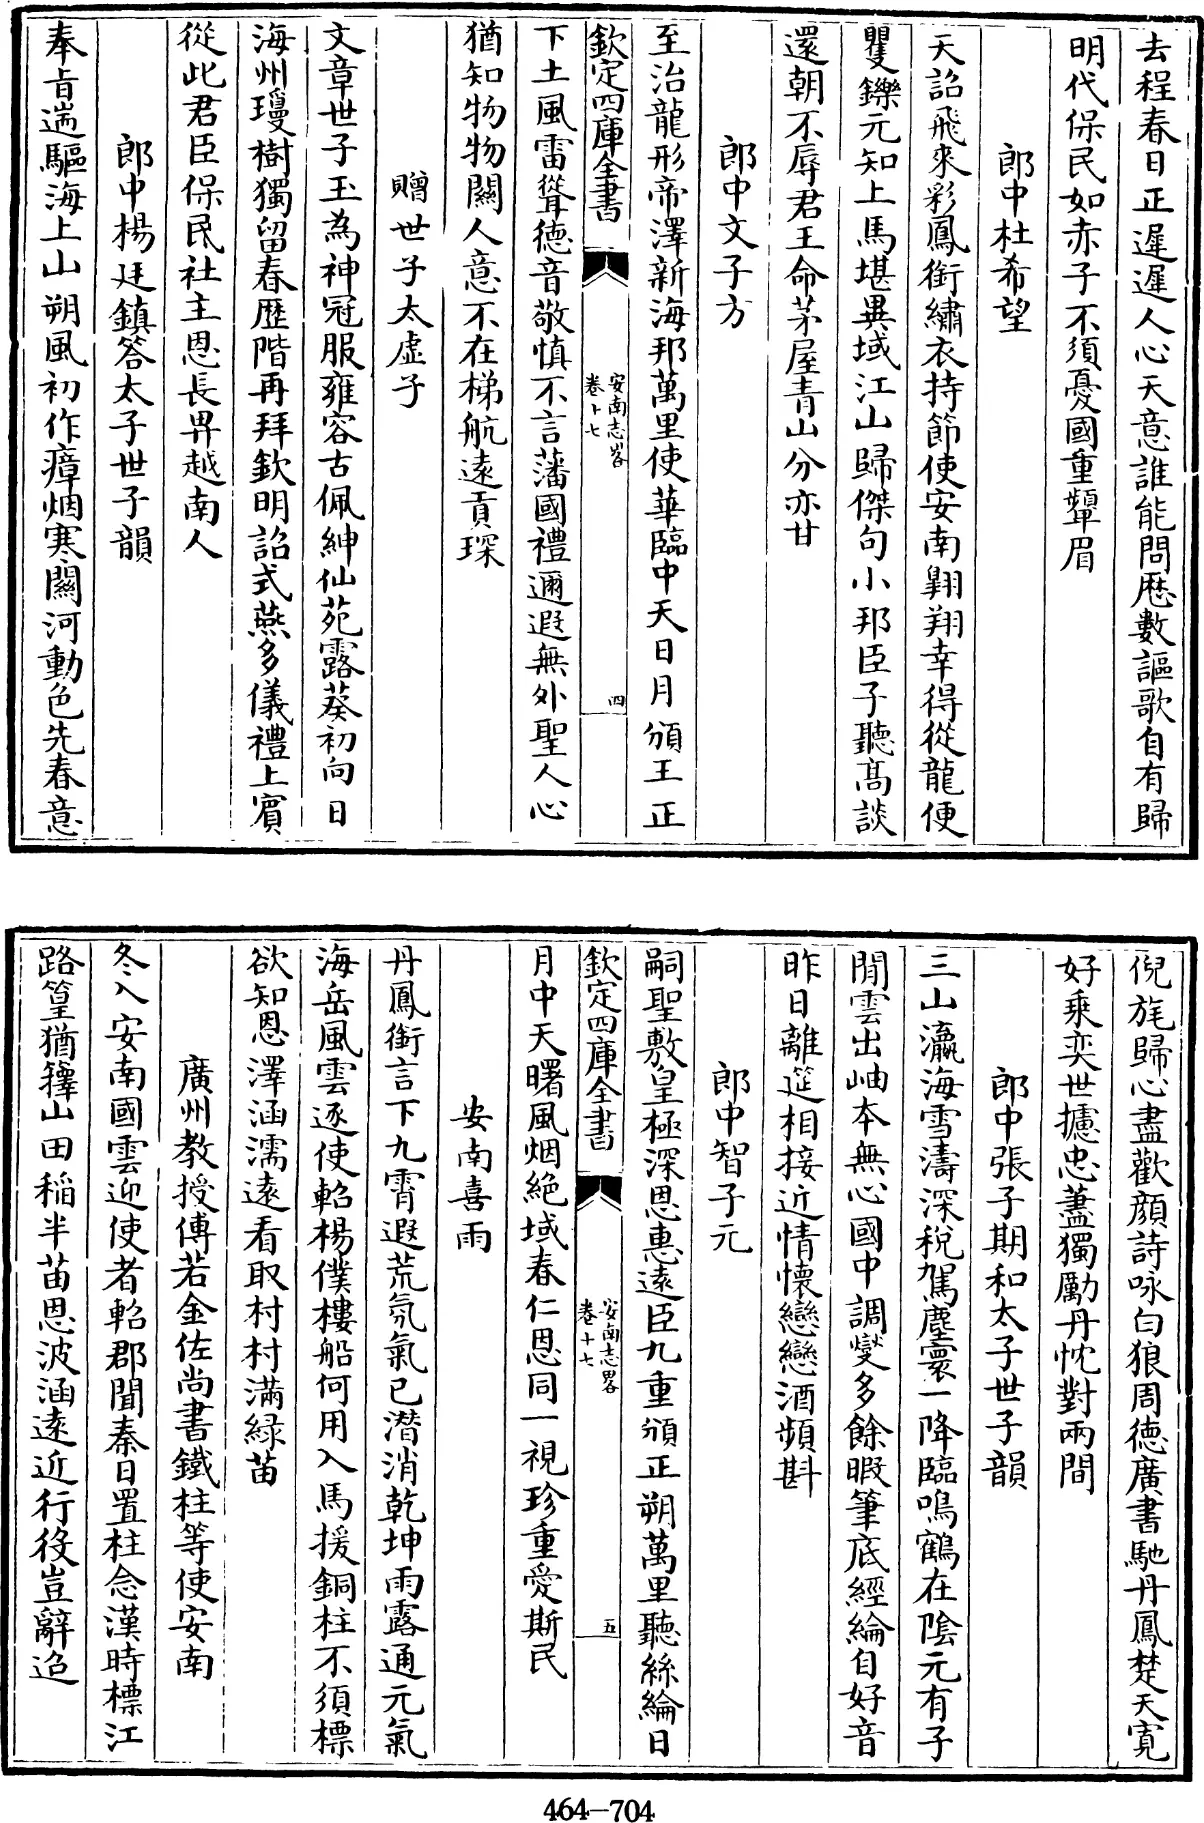 去程春日正遲遲人心天意誰能問厯數謳歌自有歸
明代保民如赤子不須憂國重顰眉
郎中杜希望
天詔飛來彩鳳銜繡衣持節使安南翺翔幸得從龍便
矍鑠元知上馬堪異域江山歸傑句小邦臣子聽髙談
還朝不辱君王命茅屋青山分亦甘
郎中文子方
至治龍形帝澤新海邦萬里使華臨中天日月頒王正
欽定四庫全書
安南志畧
卷十七
四
下土風雷聳德音敬慎不言藩國禮邇遐無外聖人心
猶知物物闗人意不在梯航遠貢琛
贈世子太虚子
文章世子玉為神冠服雍容古佩紳仙苑露葵初向日
海州瓊樹獨留春歴階再拜欽明詔式燕多儀禮上賔
從此君臣保民社主恩長畀越南人
郎中楊廷鎮答太子世子韻
奉㫖遄驅海上山朔風初作瘴烟寒闗河動色先春意
倪旄歸心盡歡顔詩咏白狼周德廣書馳丹鳳楚天寛
好乘奕世攄忠藎獨勵丹忱對兩間
郎中張子期和太子世子韻
三山瀛海雪濤深税駕塵寰一降臨鳴鶴在隂元有子
閒雲出岫本無心國中調燮多餘暇筆底經綸自好音
昨日離筵相接近情懷戀戀酒頻斟
郎中智子元
嗣聖敷皇極深恩惠遠臣九重頒正朔萬里聽絲綸日
欽定四庫全書
安南志畧
卷十七
五
月中天曙風烟絶域春仁恩同一視珍重愛斯民
安南喜雨
丹鳳銜言下九霄遐荒氛氣已潜消乾坤雨露通元氣
海岳風雲逐使軺楊僕樓船何用入馬援銅柱不須標
欲知恩澤涵濡遠看取村村滿緑苗
廣州教授傅若金佐尚書鐵柱等使安南
冬入安南國雲迎使者軺郡聞秦日置柱念漢時標江
路篁猶籜山田稲半苗恩波涵逺近行役豈辭迢
464-704